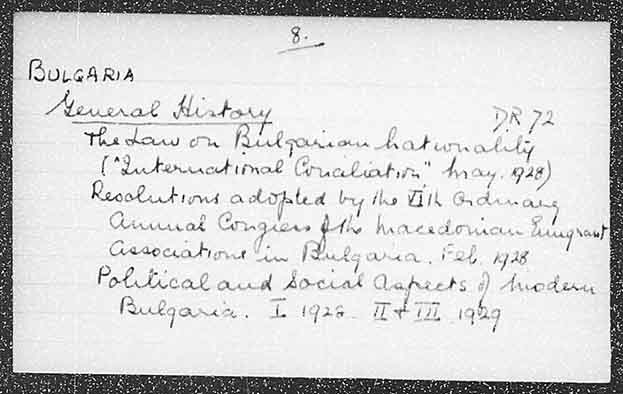 8.
BULGARIA
General History D.R 72
The Law on Bulgarian Nationality
("International Conciliation" May. 1928)
Resolutions adopted by the VIth Ordinary
Annual Congress of the Macedonian Emigrant
Associations in Bulgaria. Feb. 1928
Political and Social Aspects of Modern
Bulgaria. I 1928 II + III 1929